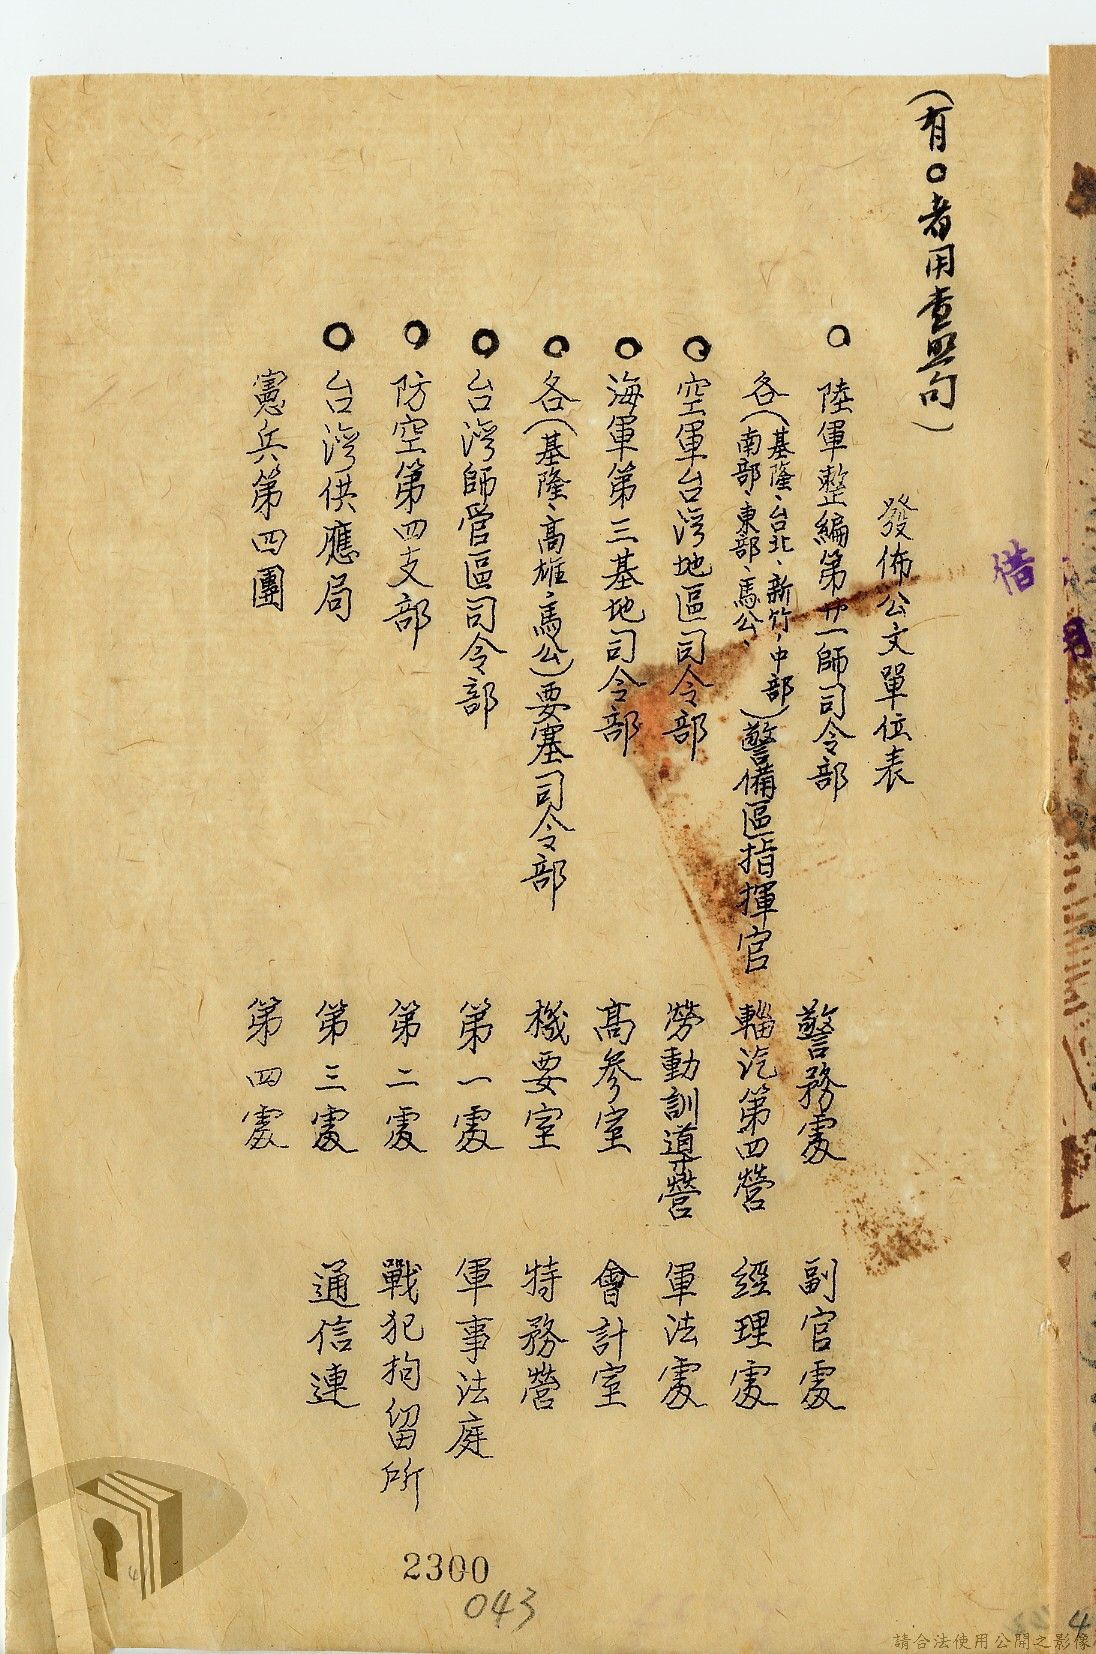 (有○者用查照句)
發佈公文單位表
○ 陸軍整編第廿一師司令部
各(基隆、台北、新竹、中部、南部、東部、馬公、)警備區指揮官
○ 空軍台灣地區司令部
○ 海軍第三基地司令部
○ 各(基隆、高雄、馬公)要塞司令部
○ 台灣師管區司令部
○ 防空第四支部
○ 台灣供應局
憲兵第四團
警務處
輜汽第四營
勞動訓導營
高參室
機要室
第一處
第二處
第三處
第四處
副官處
經理處
軍法處
會計室
特務營
軍事法庭
戰犯拘留所
通信連
借
2300
043
請合法使用公開之影像